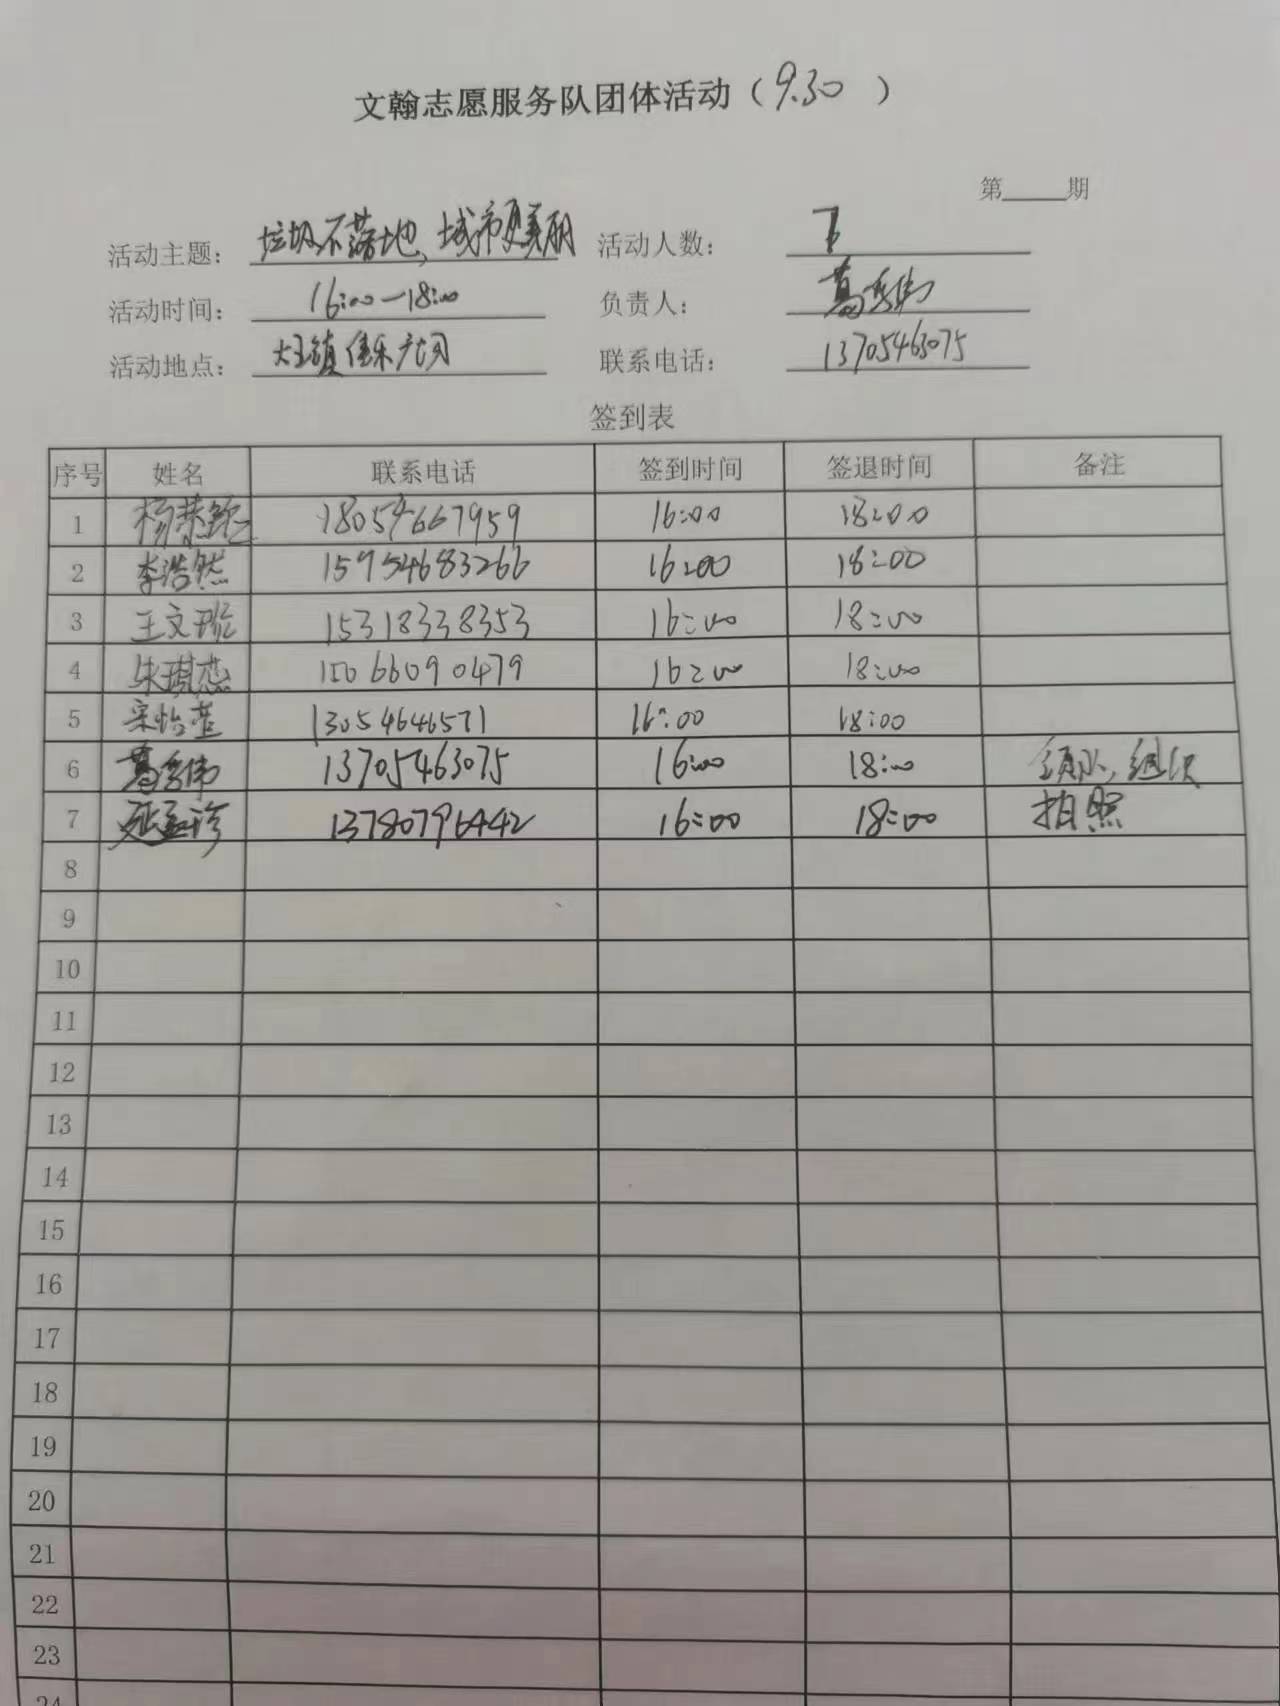 文翰志愿服务队团体活动（9.30）
第____期
活动主题：垃圾不落地、城市更美丽 活动人数：
活动时间：16:00—18:00 负责人：葛秀伟
活动地点：大王镇佳乐广场 联系电话：13705463075
签到表
序号 姓名 联系电话 签到时间 签退时间 备注
1 18054667959 16:00 18:00
2 李浩然 15954683266 16:00 18:00
3 王文 15318338353 16:00 18:00
4 朱琪 15066090479 16:00 18:00
5 宋怡萱 13054646571 16:00 18:00
6 葛秀伟 13705463075 16:00 18:00 领队、组织
7 延孟珍 13780796442 16:00 18:00 拍照
8
9
10
11
12
13
14
15
16
17
18
19
20
21
22
23
24